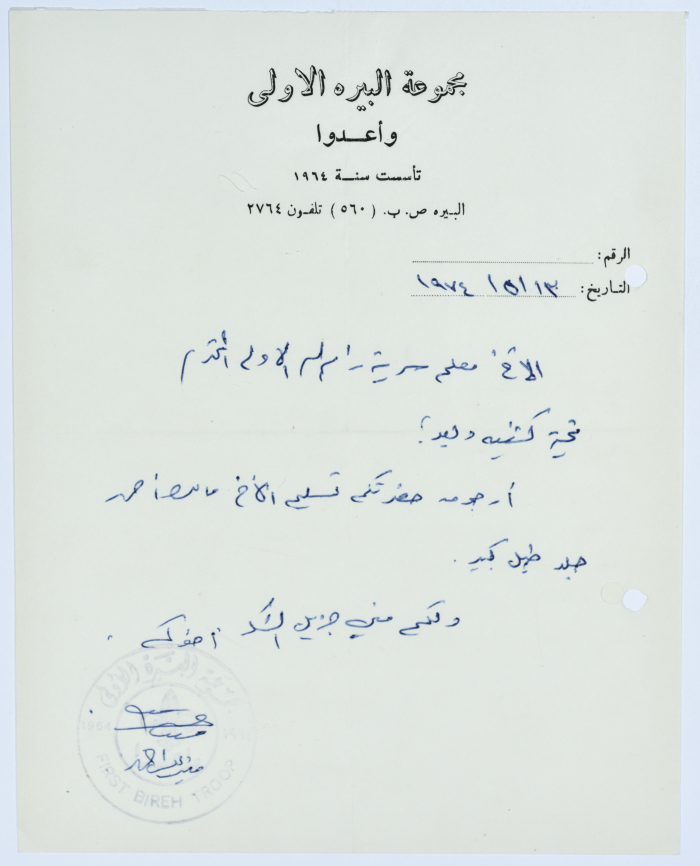 مجموعة البيره الاولى
وأعدوا
تأسست سنة ١٩٦٤
البيره ص. ب. (٥٦٠) تلفون ٢٧٦٤
الرقم:
التاريخ: ١٣/٥/١٩٧٤
الأخ معلم سرية رام الله الاولى المحترم
تحية كشفيه وبعد؛
أرجو من حضرتكم تسليم الأخ أحمد
جلد طبل كبير.
ولكم مني جزيل الشكر أخوكم
مجموعة البيرة الأولى
1964
FIRST BIREH TROOP